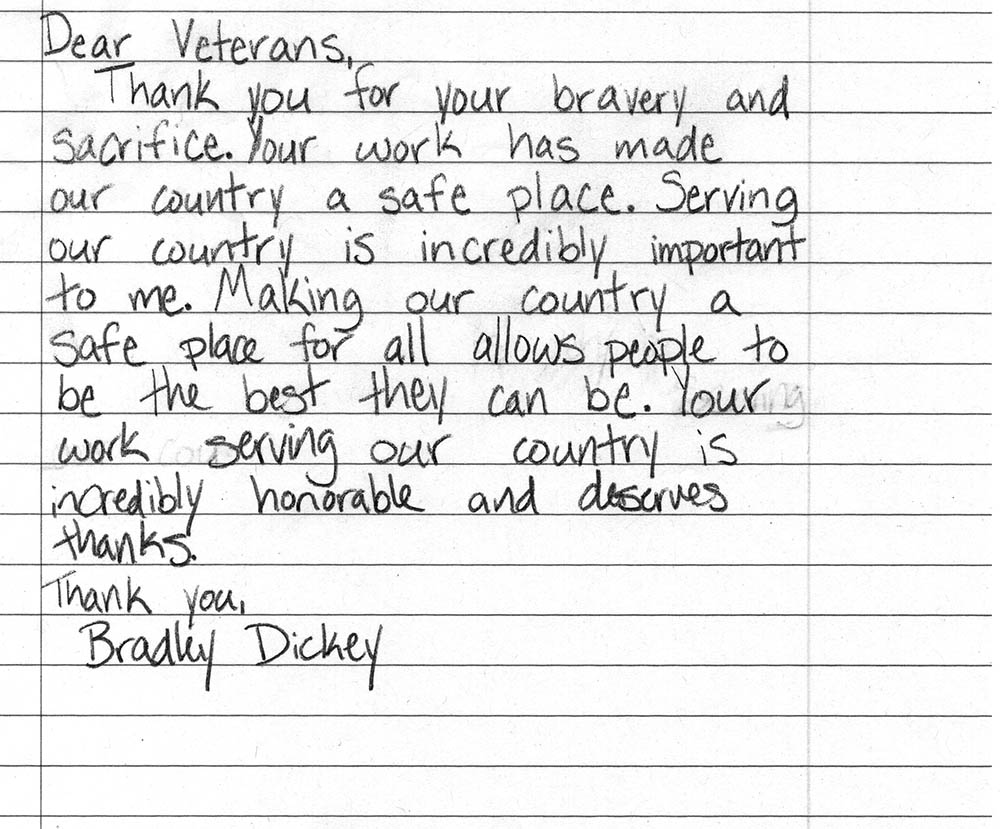 Dear Veterans,
Thank you for your bravery and
sacrifice. Your work has made
our country a safe place. Serving
our country is incredibly important
to me. Making our country a
safe place for all allows people to
be the best they can be. Your
work serving our country is
incredibly honorable and deserves
thanks.
Thank you,
Bradley Dickey